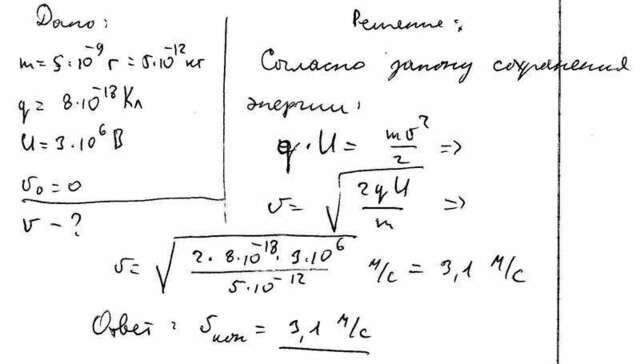 Дано:
m = 5·10⁻⁹ г = 5·10⁻¹² кг
q = 8·10⁻¹⁸ Кл
U = 3·10⁶ В
υ₀ = 0
υ – ?
Решение:
Согласно закону сохранения
энергии:
q · U = mυ²/2 =>
υ = √(2qU/m) =>
υ = √(2·8·10⁻¹⁸·3·10⁶/5·10⁻¹²) м/с = 3,1 м/с
Ответ: υкон = 3,1 м/с